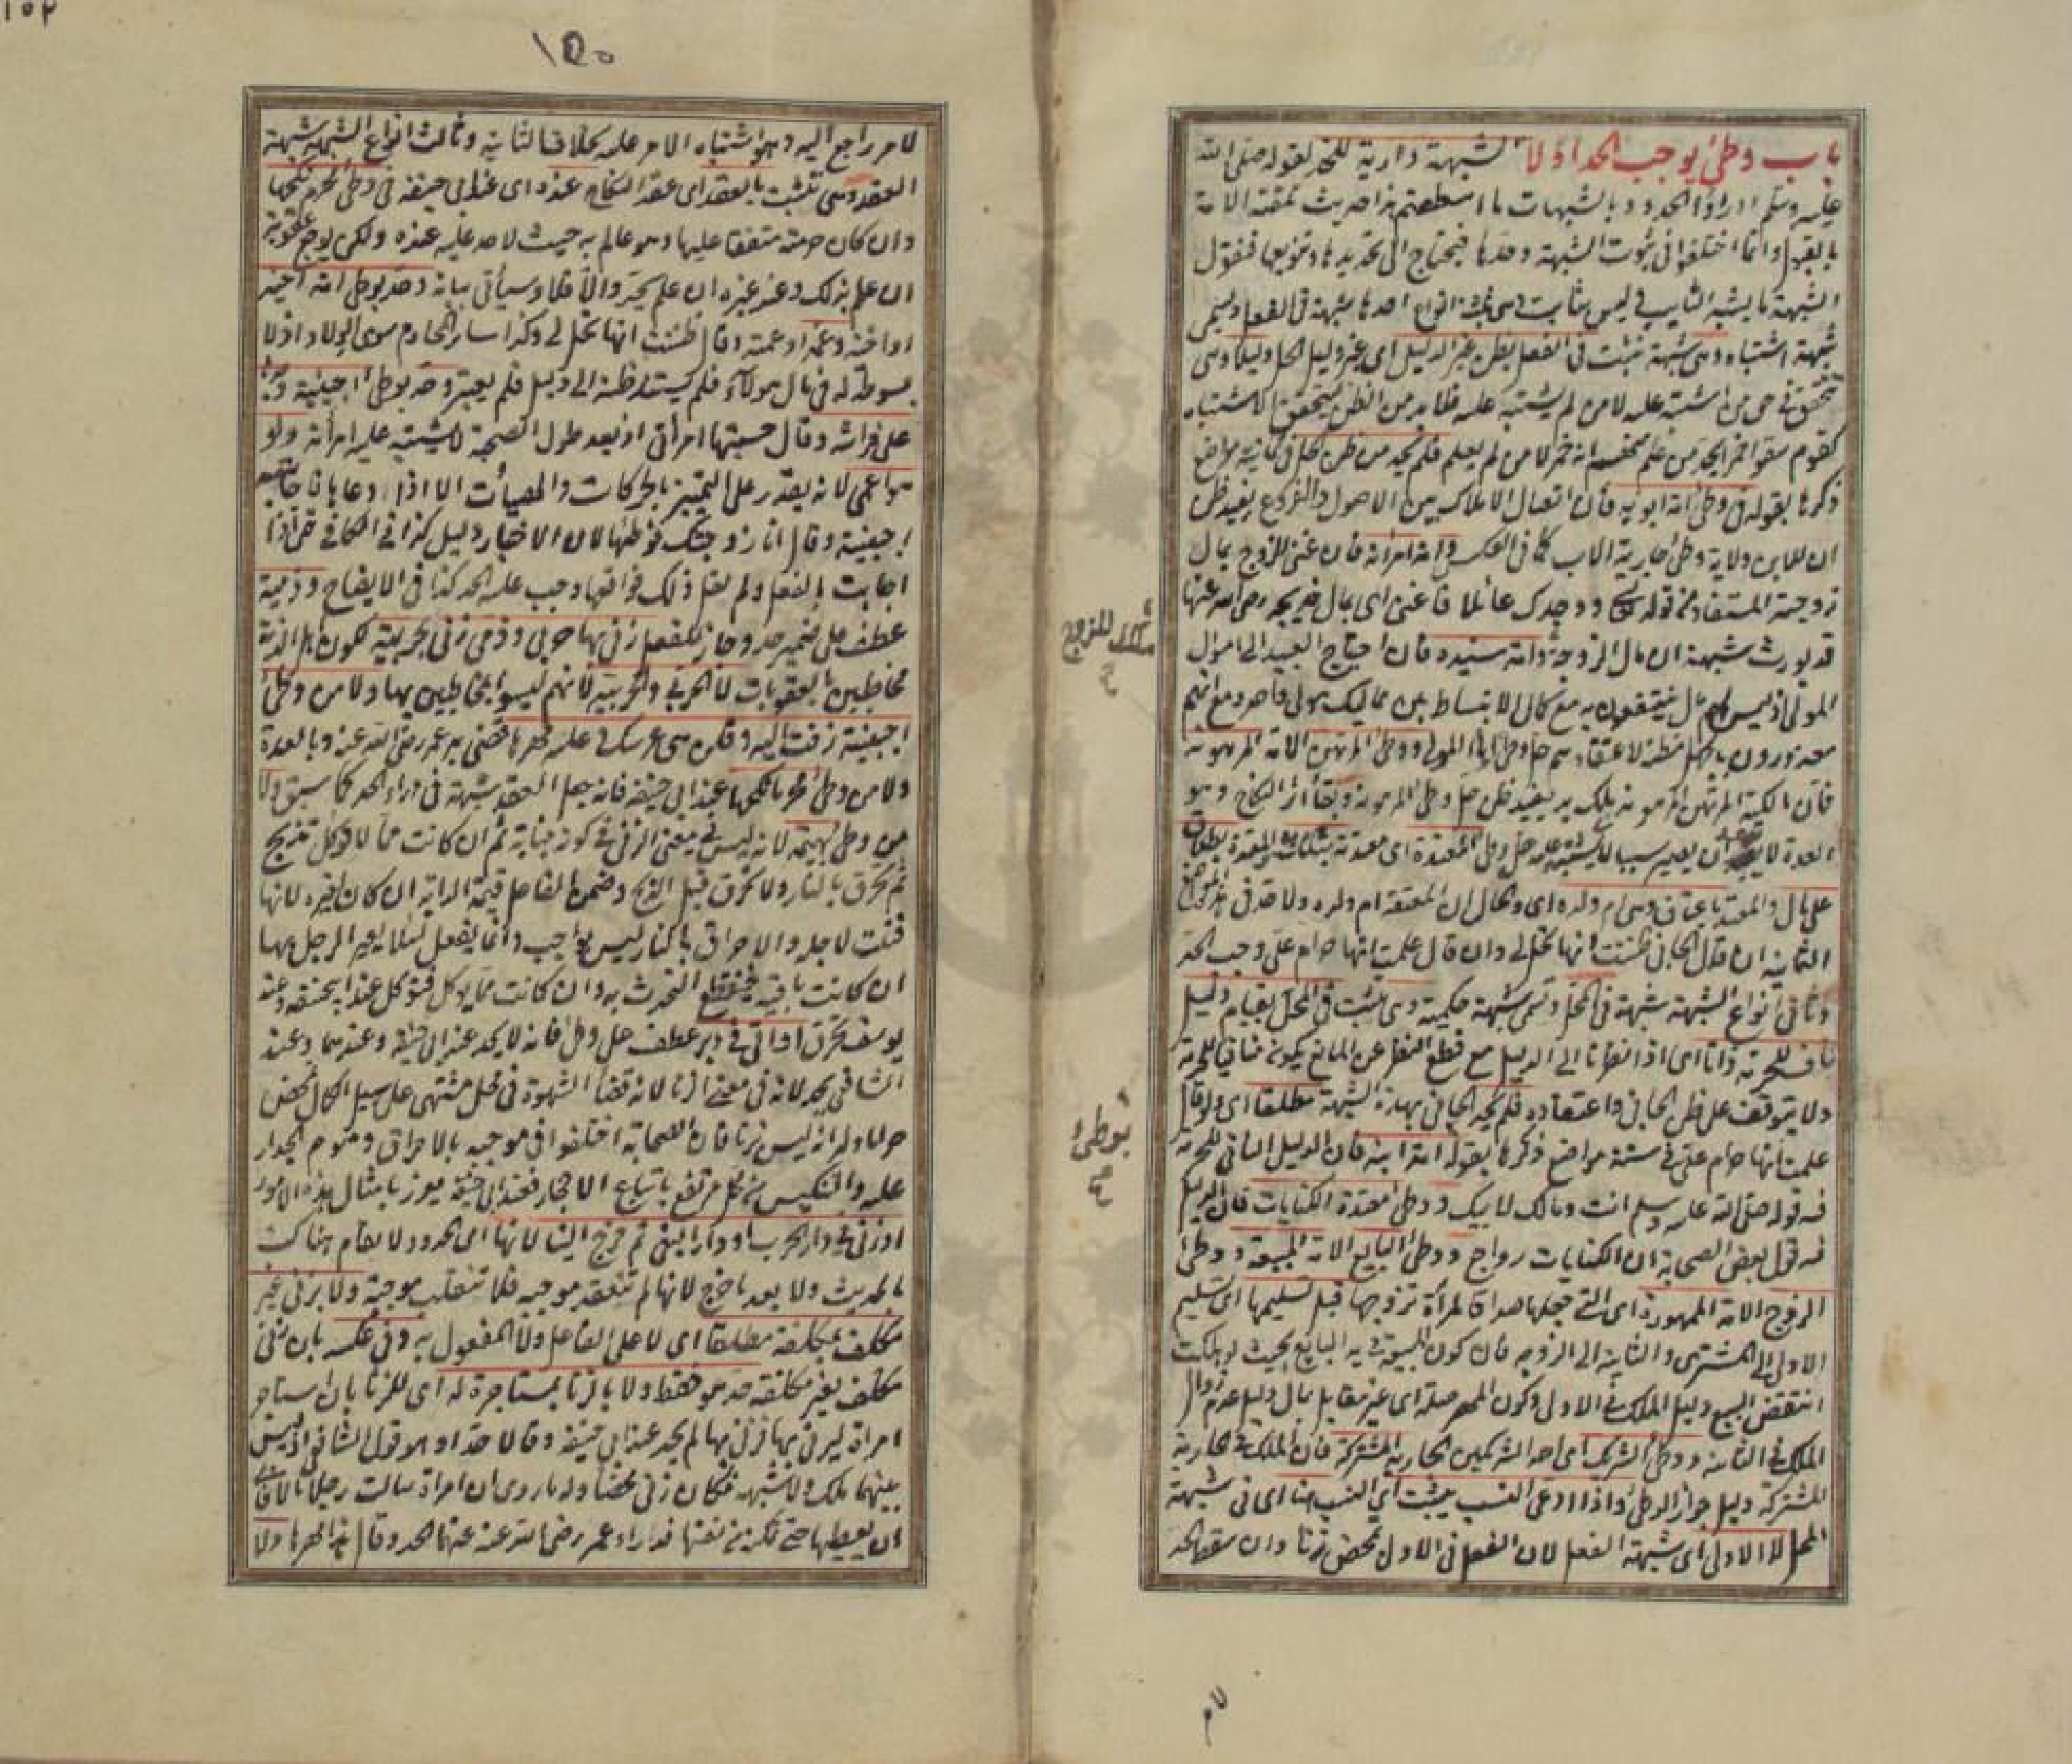 باب وطئ يوجب الحد أو لا الشبهة دارئة للحد لقوله صلى الله
عليه وسلم ادرؤا الحدود بالشبهات ما استطعتم هذا حديث تلقته الامة
بالقبول وانما اختلفوا فى ثبوت الشبهة وعدمها فيحتاج الى تحديدها وتنويعها فنقول
الشبهة ما يشبه الثابت وليس بثابت وهى ثلثة انواع احدها شبهة فى الفعل وتسمى
شبهة اشتباه وهى شبهة تثبت فى الفعل بظن غير الدليل اى غير دليل الحل دليلا وهى
تتحقق فى حق من اشتبه عليه لا من لم يشتبه عليه فلا بد من الظن ليتحقق الاشتباه
كقوم سقوا خمرا يحد من علم منهم انه خمر لا من لم يعلم فلم يحد من ظن الحل فى ثمانية مواضع
ذكرها بقوله فى وطئ امة ابويه فان اتصال الاملاك بين الاصول والفروع يفيد ظن
ان للابن ولاية وطئ جارية الاب كما فى العكس وامة امرأته فان غنى الزوج بمال
زوجته المستفاد من قوله تعالى ووجدك عائلا فاغنى اى بمال خديجة رضى الله عنها
قد يورث شبهة ان مال الزوجة وامة سيده فان احتياج العبيد الى اموال
المولى اذ ليس لهم مال ينتفعون به مع كمال الانبساط بين مماليك مولى واحد مع انهم
معذورون بالجهل مظنة لاعتقادهم حل وطئ اماء المولى ووطئ المرتهن الامة المرهونة
فان مالكية المرتهن المرهونة ملك يد يفيد ظن حل وطئ المرهونة وبقاء اثر النكاح وهو
العدة لا يبعد ان يصير سببا لان يشتبه عليه حل وطئ المعتدة اى معتدته بثلاث والمعتدة بطلاق
على مال والمعتدة باعتاق وهى ام ولده اى والحال ان المعتقة ام ولده ولا حد فى هذه المواضع
الثمانية ان قال الجانى ظننت انها تحل لى وان قال علمت انها حرام على وجب الحد
وثانى انواع الشبهة شبهة فى المحل وتسمى شبهة حكمية وهى تثبت فى المحل بقيام دليل
ناف للحرمة ذاتا اى اذا نظرنا الى الدليل مع قطع النظر عن المانع يكون منافيا للحرمة
ولا يتوقف على ظن الجانى واعتقاده فلم يحد الجانى بهذه الشبهة مطلقا اى ولو قال
علمت انها حرام على فى ستة مواضع ذكرها بقوله امة ابنه فان الدليل النافى للحرمة
فيه قوله صلى الله عليه وسلم انت ومالك لابيك ووطئ معتدة الكنايات فان الدليل
فيه قول بعض الصحابة ان الكنايات رواجع ووطئ البايع الامة المبيعة ووطئ
الزوج الامة الممهورة اى التى جعلها صداقا لامرأة تزوجها قبل تسليمها اى تسليم
الاولى الى المشترى والثانية الى الزوجة فان كون المبيعة فى يد البايع بحيث لو هلكت
انتقض البيع دليل الملك فى الاولى وكون المهر صلة اى غير مقابل بمال دليل عدم زوال
الملك فى الثانية ووطئ الشريك اى احد الشريكين الجارية المشتركة فان الملك فى الجارية
المشتركة دليل جواز الوطئ واذا ادعى النسب يثبت اى النسب هنا اى فى شبهة
المحل لا الاولى اى شبهة الفعل لان الفعل فى الاول تمحض زنا وان سقط الحد
مال للزوج
بوطئ
١٥٠
١٥٢
لامر راجع اليه وهو اشتباه الامر عليه بخلاف الثانية وثالث انواع الشبهة شبهة
العقد وهى تثبت بالعقد اى عقد النكاح عنده اى عند ابى حنيفة فى وطئ محرم نكحها
وان كان حرمته متفقا عليها وهو عالم به حيث لا حد عليه عنده ولكن يوجع عقوبة
ان علم بذلك وعند غيره ان علم يحد والا فلا وسيأتى بيانه وحد بوطئ امة اخيه
او اخته وعمه او عمته وقال ظننت انها تحل لى وكذا سائر المحارم سوى الولاد اذ لا
بسوطة له فى مال هؤلاء فلم يستند ظنه الى دليل فلم يعتبر وحد بوطئ اجنبية وجدها
على فراشه وقال حسبتها امرأتى اذ بعد طول الصحبة لا يشتبه عليه امرأته ولو
هو اعمى لانه يقدر على التمييز بالحركات والهيئات الا اذا دعاها فاجابته
اجنبية وقال انا زوجتك فوطئها لان الاخبار دليل كذا فى الكافى حتى اذا
اجابت بالفعل ولم تقل ذلك فواقعها وجب عليه الحد كذا فى الايضاح وذمية
عطف على ضمير حد وجاز للفصل زنى بها حربى وذمى زنى بحربية لكون اهل الذمة
مخاطبين بالعقوبات لا الحربى والحربية لانهم ليسوا مخاطبين بها ولا من وطئ
اجنبية زفت اليه وقلن هى عرسك عليه مهرها قضى به عمر رضى الله عنه وبالعدة
ولا من وطئ محرما نكحها عند ابى حنيفة فانه جعل العقد شبهة فى درء الحد كما سبق ولا
من وطئ بهيمة لانه ليس فى معنى الزنى فى كونه جناية ثم ان كانت مما لا يؤكل تذبح
ثم تحرق بالنار ولا تحرق قبل الذبح وضمن الفاعل قيمة الدابة ان كان لغيره لانها
قتلت لاجله والاحراق بالنار ليس بواجب وانما يفعل لئلا يعير الرجل بها
ان كانت باقية فينقطع التحدث به وان كانت مما يؤكل فتؤكل عند ابى حنيفة وعند
يوسف تحرق او اتى فى دبر عطف على وطئ فانه لا يحد عند ابى حنيفة وعندهما وعند
الشافعى يحد لانه فى معنى الزنا لانه قضاء الشهوة فى محل مشتهى على سبيل الكمال تمحض
حراما وله انه ليس بزنا فان الصحابة اختلفوا فى موجبه بالاحراق وهدم الجدار
عليه والتنكيس من محل مرتفع باتباع الاحجار فعند ابى حنيفة يعزر بامثال هذه الامور
او زنى فى دار الحرب او دار البغى ثم خرج الينا لانها اى الحدود لا تقام هناك
بالحديث ولا بعد ما خرج لانها لم تنعقد موجبة فلا تنقلب موجبة ولا بزنى غير
مكلف بمكلفة مطلقا اى لا على الفاعل ولا المفعول به وفى عكسه بان زنى
مكلف بغير مكلفة حد هو فقط ولا بالزنا بمستأجرة له اى للزنا بان استأجر
امرأة ليزنى بها فزنى بها لم يحد عند ابى حنيفة وقالا حد وهو قول الشافعى اذ ليس
بينهما ملك ولا شبهة فكان زنى محضا وله ما روى ان امرأة سألت رجلا مالا فابى
ان يعطيها حتى تمكنه من نفسها فدرأ عمر رضى الله عنه عنها الحد وقال هذا مهرها ولا